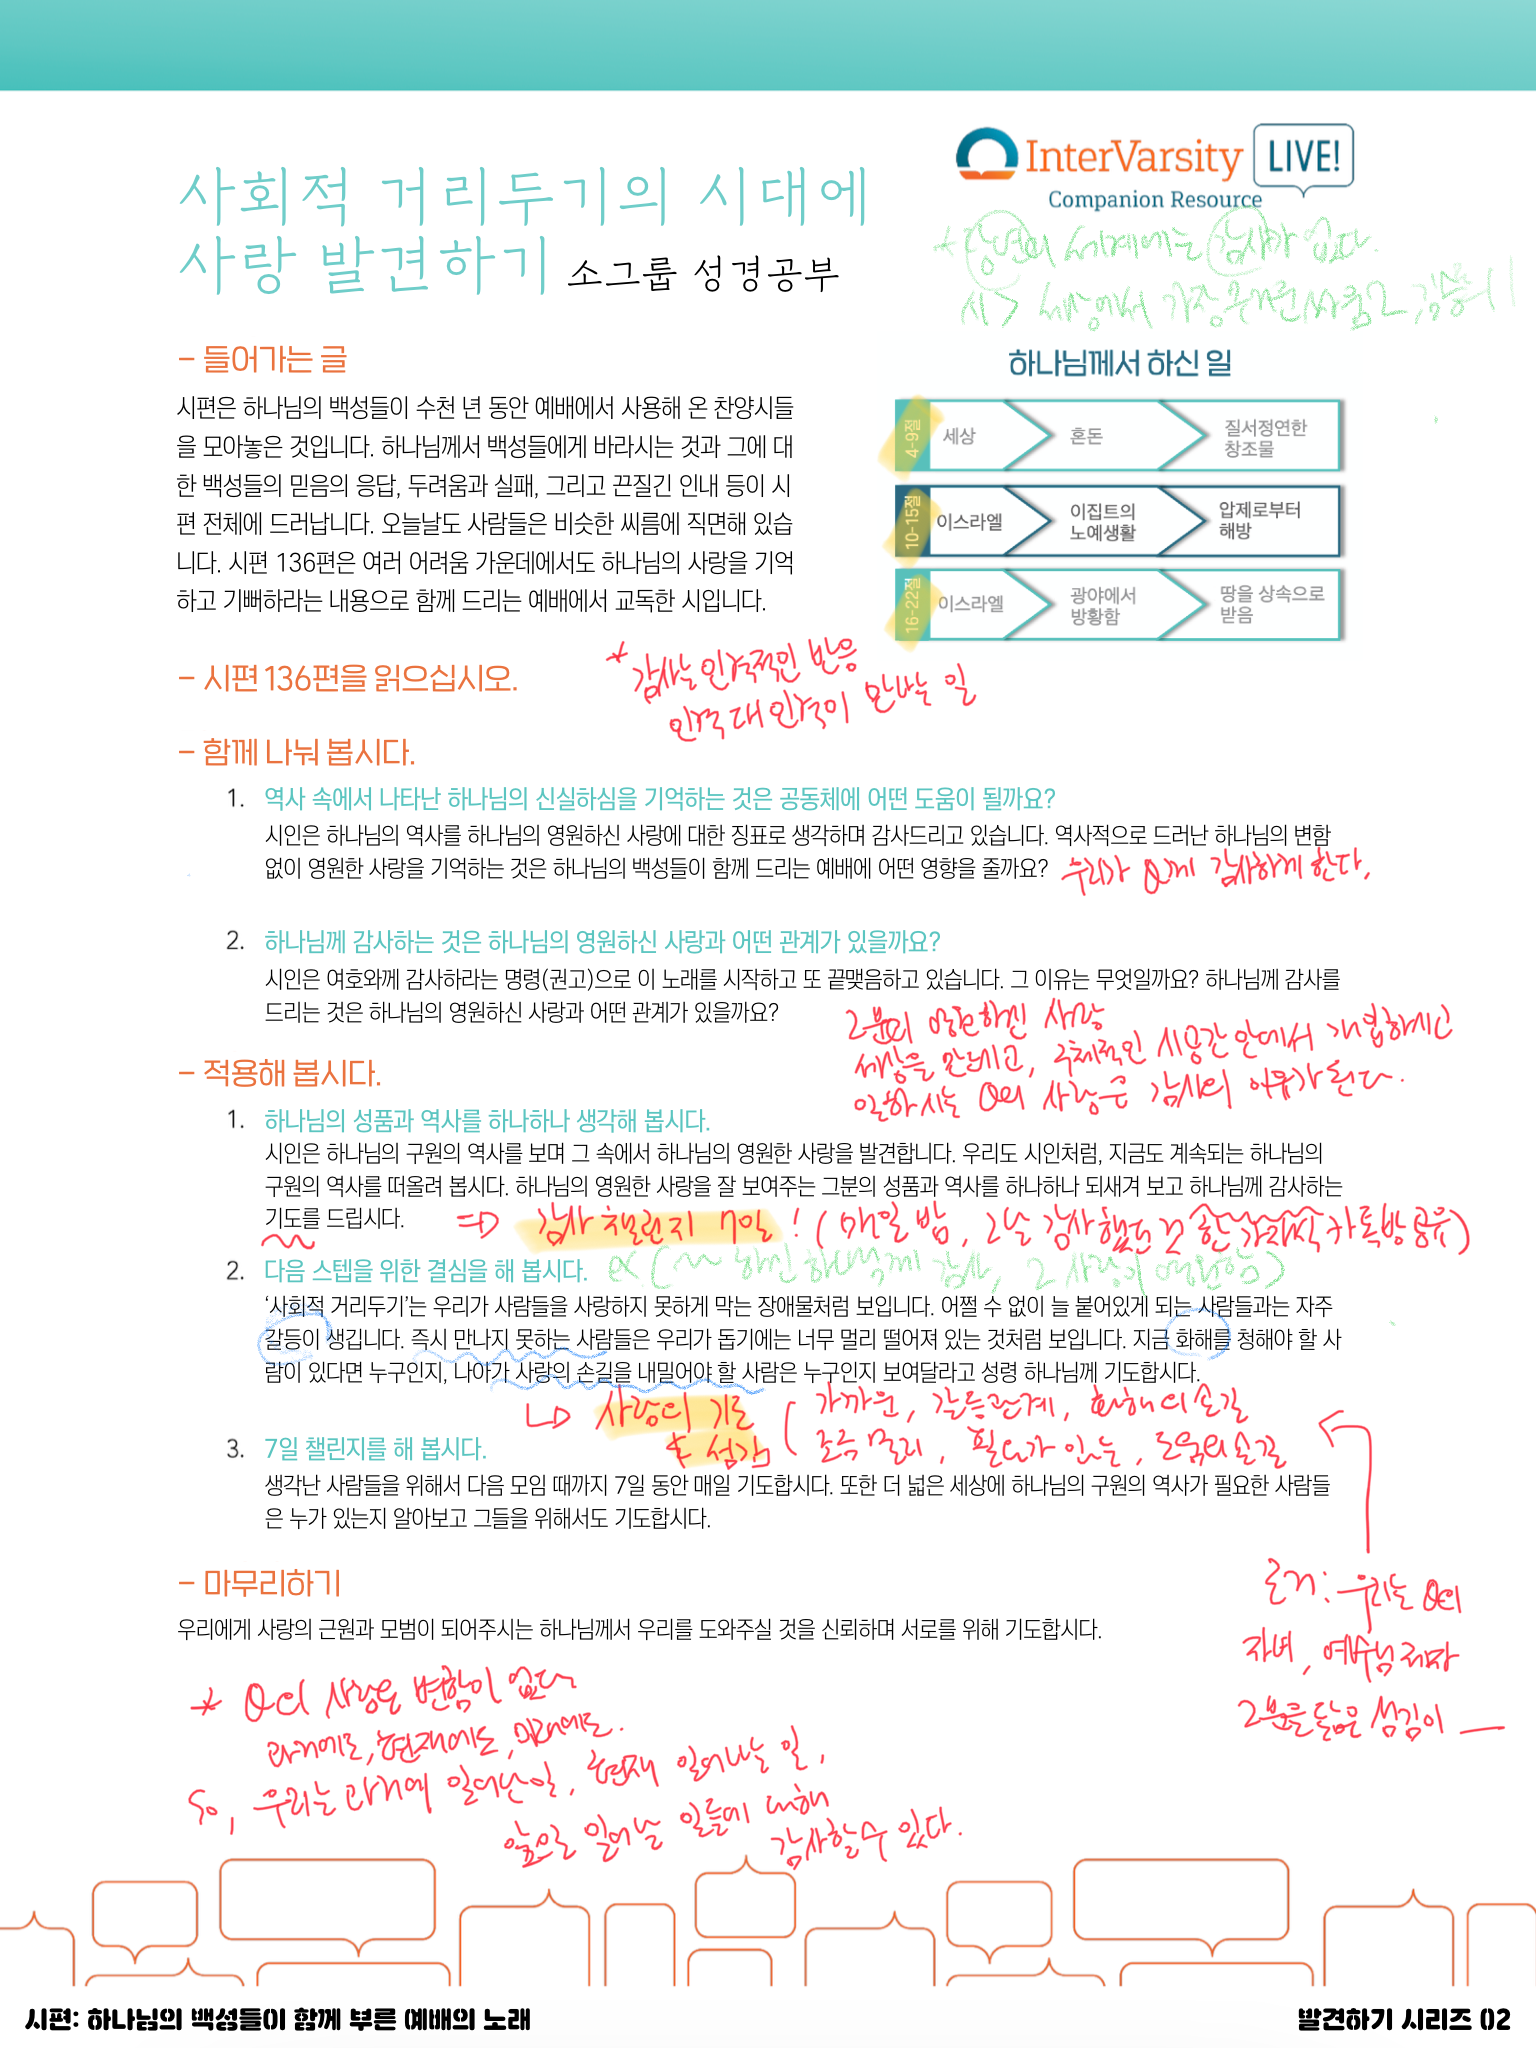 InterVarsity LIVE!
Companion Resource
사회적 거리두기의 시대에
사랑 발견하기 소그룹 성경공부
+ 당연의 세계에는 감사가 없다.
시> 세상에서 가장 오래된 싸움
- 들어가는 글
시편은 하나님의 백성들이 수천 년 동안 예배에서 사용해 온 찬양시들
을 모아놓은 것입니다. 하나님께서 백성들에게 바라시는 것과 그에 대
한 백성들의 믿음의 응답, 두려움과 실패, 그리고 끈질긴 인내 등이 시
편 전체에 드러납니다. 오늘날도 사람들은 비슷한 씨름에 직면해 있습
니다. 시편 136편은 여러 어려움 가운데에서도 하나님의 사랑을 기억
하고 기뻐하라는 내용으로 함께 드리는 예배에서 교독한 시입니다.
하나님께서 하신 일
4-9절 세상 혼돈 질서정연한
창조물
10-15절 이스라엘 이집트의
노예생활 압제로부터
해방
16-22절 이스라엘 광야에서
방황함 땅을 상속으로
받음
- 시편 136편을 읽으십시오.
* 감사는 인격적인 반응
인격 대 인격이 만나는 일
- 함께 나눠 봅시다.
1. 역사 속에서 나타난 하나님의 신실하심을 기억하는 것은 공동체에 어떤 도움이 될까요?
시인은 하나님의 역사를 하나님의 영원하신 사랑에 대한 징표로 생각하며 감사드리고 있습니다. 역사적으로 드러난 하나님의 변함
없이 영원한 사랑을 기억하는 것은 하나님의 백성들이 함께 드리는 예배에 어떤 영향을 줄까요? 우리가 께 감사하게 한다.
2. 하나님께 감사하는 것은 하나님의 영원하신 사랑과 어떤 관계가 있을까요?
시인은 여호와께 감사하라는 명령(권고)으로 이 노래를 시작하고 또 끝맺음하고 있습니다. 그 이유는 무엇일까요? 하나님께 감사를
드리는 것은 하나님의 영원하신 사랑과 어떤 관계가 있을까요?
그분의 영원하신 사랑
세상을 만드시고, 구체적인 시공간 안에서 개입하시고
일하시는 의 사랑은 감사의 이유가 된다.
- 적용해 봅시다.
1. 하나님의 성품과 역사를 하나하나 생각해 봅시다.
시인은 하나님의 구원의 역사를 보며 그 속에서 하나님의 영원한 사랑을 발견합니다. 우리도 시인처럼, 지금도 계속되는 하나님의
구원의 역사를 떠올려 봅시다. 하나님의 영원한 사랑을 잘 보여주는 그분의 성품과 역사를 하나하나 되새겨 보고 하나님께 감사하는
기도를 드립시다. => 감사 챌린지 7일! (매일 밤, 그날 감사했던 것 한 가지씩 카톡방 공유)
2. 다음 스텝을 위한 결심을 해 봅시다. ex (~~ 하신 하나님께 감사, 그 사랑이 영원함)
'사회적 거리두기'는 우리가 사람들을 사랑하지 못하게 막는 장애물처럼 보입니다. 어쩔 수 없이 늘 붙어있게 되는 사람들과는 자주
갈등이 생깁니다. 즉시 만나지 못하는 사람들은 우리가 돕기에는 너무 멀리 떨어져 있는 것처럼 보입니다. 지금 화해를 청해야 할 사
람이 있다면 누구인지, 나아가 사랑의 손길을 내밀어야 할 사람은 누구인지 보여달라고 성령 하나님께 기도합시다.
사랑의 기도 ( 가까운, 갈등관계, 화해의 손길
& 섬김 조금 멀리, 필요가 있는, 도움의 손길
3. 7일 챌린지를 해 봅시다.
생각난 사람들을 위해서 다음 모임 때까지 7일 동안 매일 기도합시다. 또한 더 넓은 세상에 하나님의 구원의 역사가 필요한 사람들
은 누가 있는지 알아보고 그들을 위해서도 기도합시다.
근거: 우리는 의
자녀, 예수님 제자
그분을 닮은 섬김이 __
- 마무리하기
우리에게 사랑의 근원과 모범이 되어주시는 하나님께서 우리를 도와주실 것을 신뢰하며 서로를 위해 기도합시다.
* 의 사랑은 변함이 없다
과거에도, 현재에도, 미래에도.
So, 우리는 과거에 일어난 일, 현재 일어나는 일,
앞으로 일어날 일들에 대해
감사할 수 있다.
시편: 하나님의 백성들이 함께 부른 예배의 노래
발견하기 시리즈 02